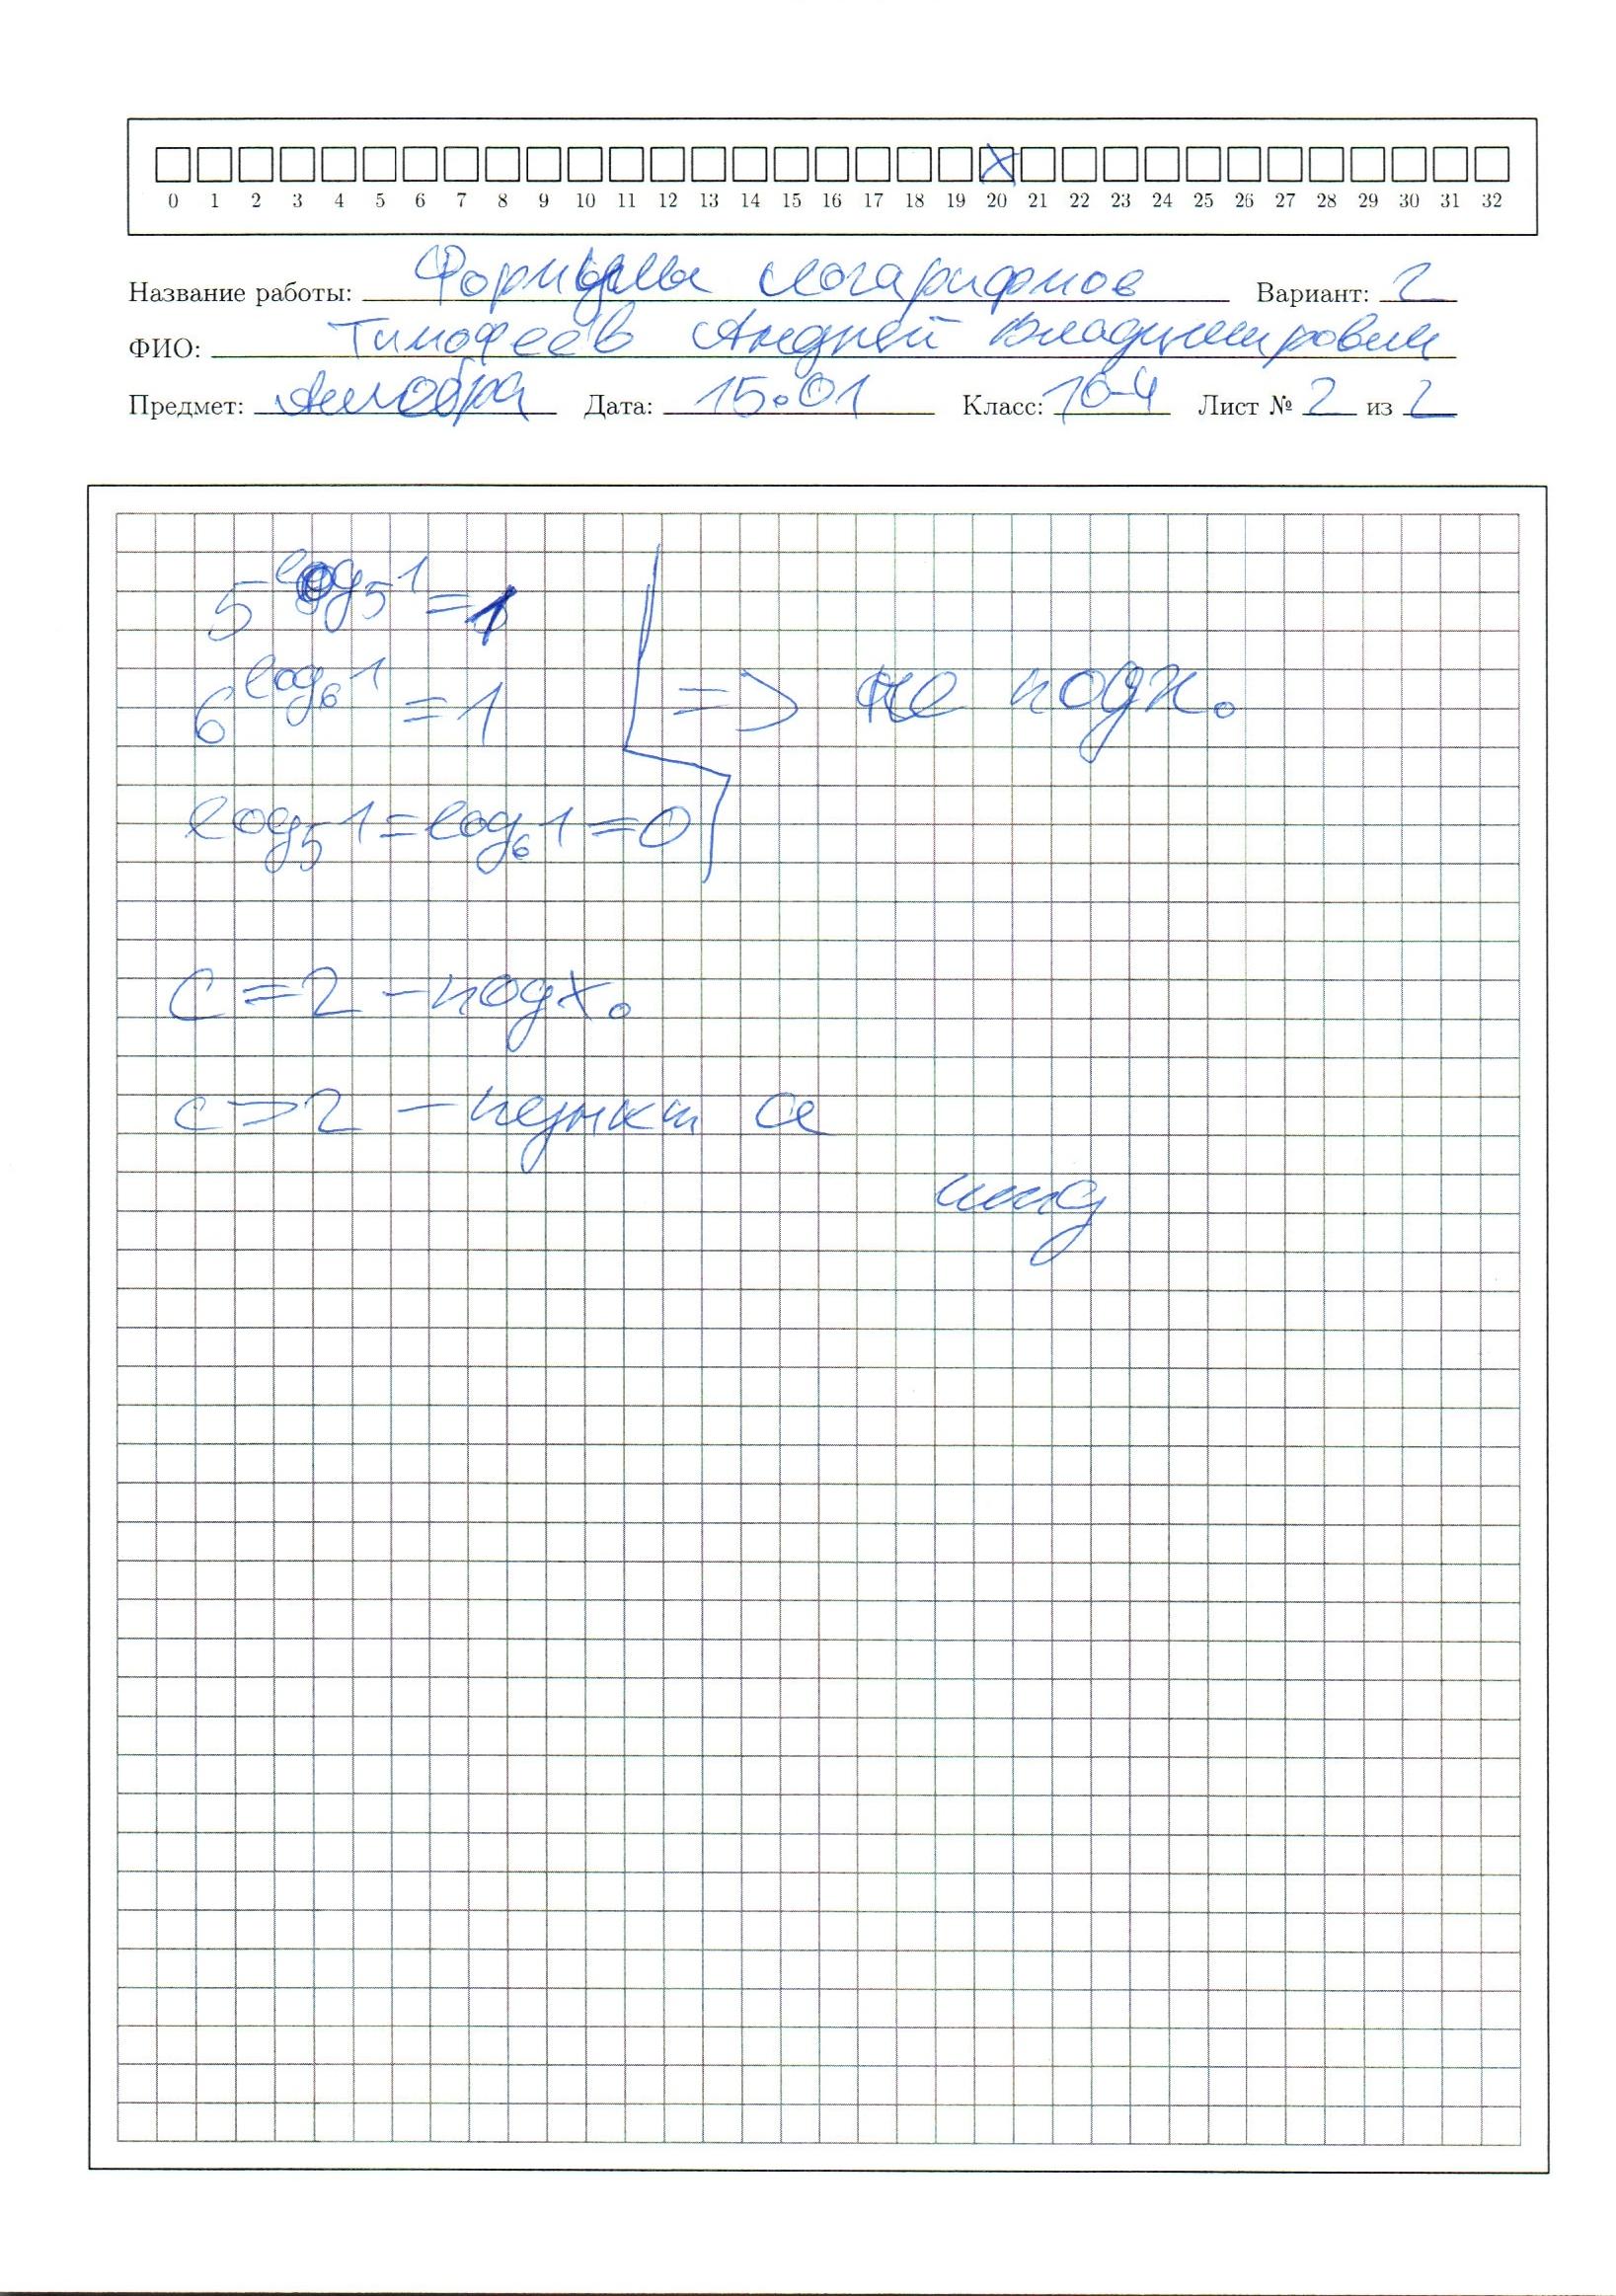 0 1 2 3 4 5 6 7 8 9 10 11 12 13 14 15 16 17 18 19 20 21 22 23 24 25 26 27 28 29 30 31 32
Название работы: Формулы логарифмов Вариант: 2
ФИО: Тимофеев Андрей Владимирович
Предмет: Алгебра Дата: 15.01 Класс: 10-4 Лист № 2 из 2
5^log₅1 = 1
6^log₆1 = 1 => не подх.
log₅1 = log₆1 = 0
C = 2 – подх.
c > 2 – пункт a
чтд